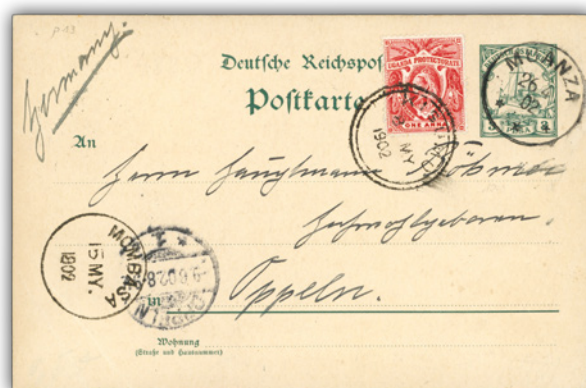 P-13
Germany.
Deutsche Reichspost
Postkarte
UGANDA PROTECTORATE
ONE ANNA
MUANZA
26
02
MY
1902
An
Herrn Hauptmann
Hochwohlgeboren.
in Oppeln.
MOMBASA
15 MY.
1902
OPPELN
Wohnung
(Straße und Hausnummer)